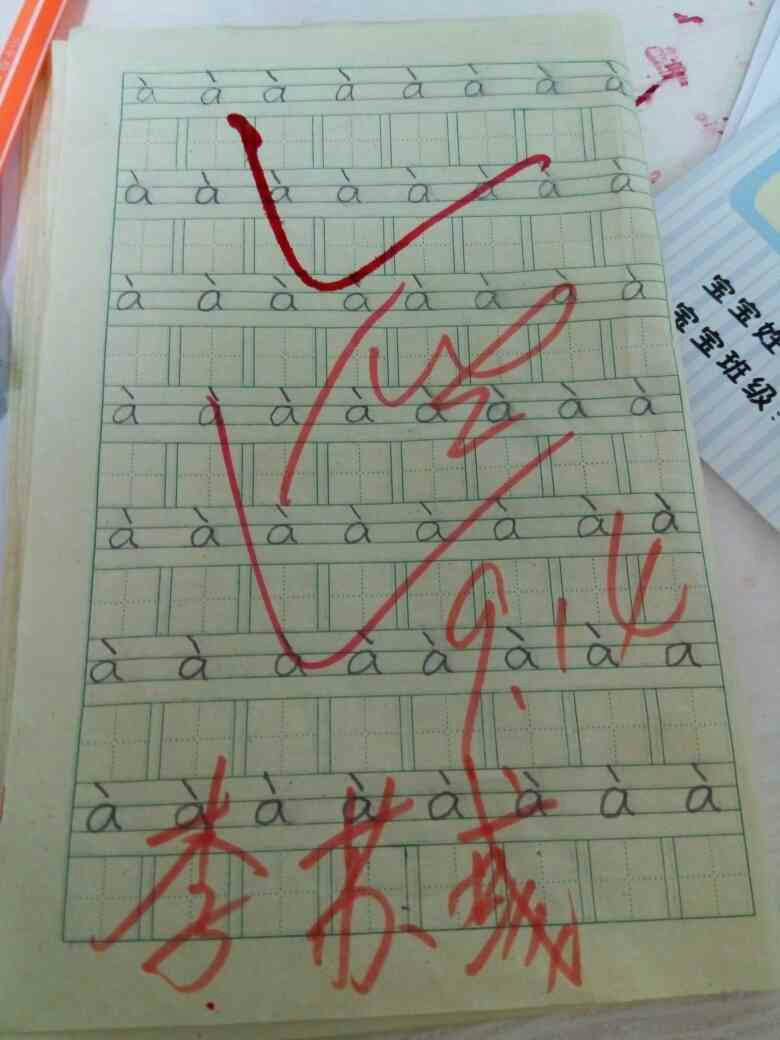 à à à à à à à à
à à à à à à à à
à à à à à à à à
à à à à à à à à
à à à à à à à à
à à a à à à à a
à à à à à à à à
9.14
李苏
宝宝姓
宝宝班级: